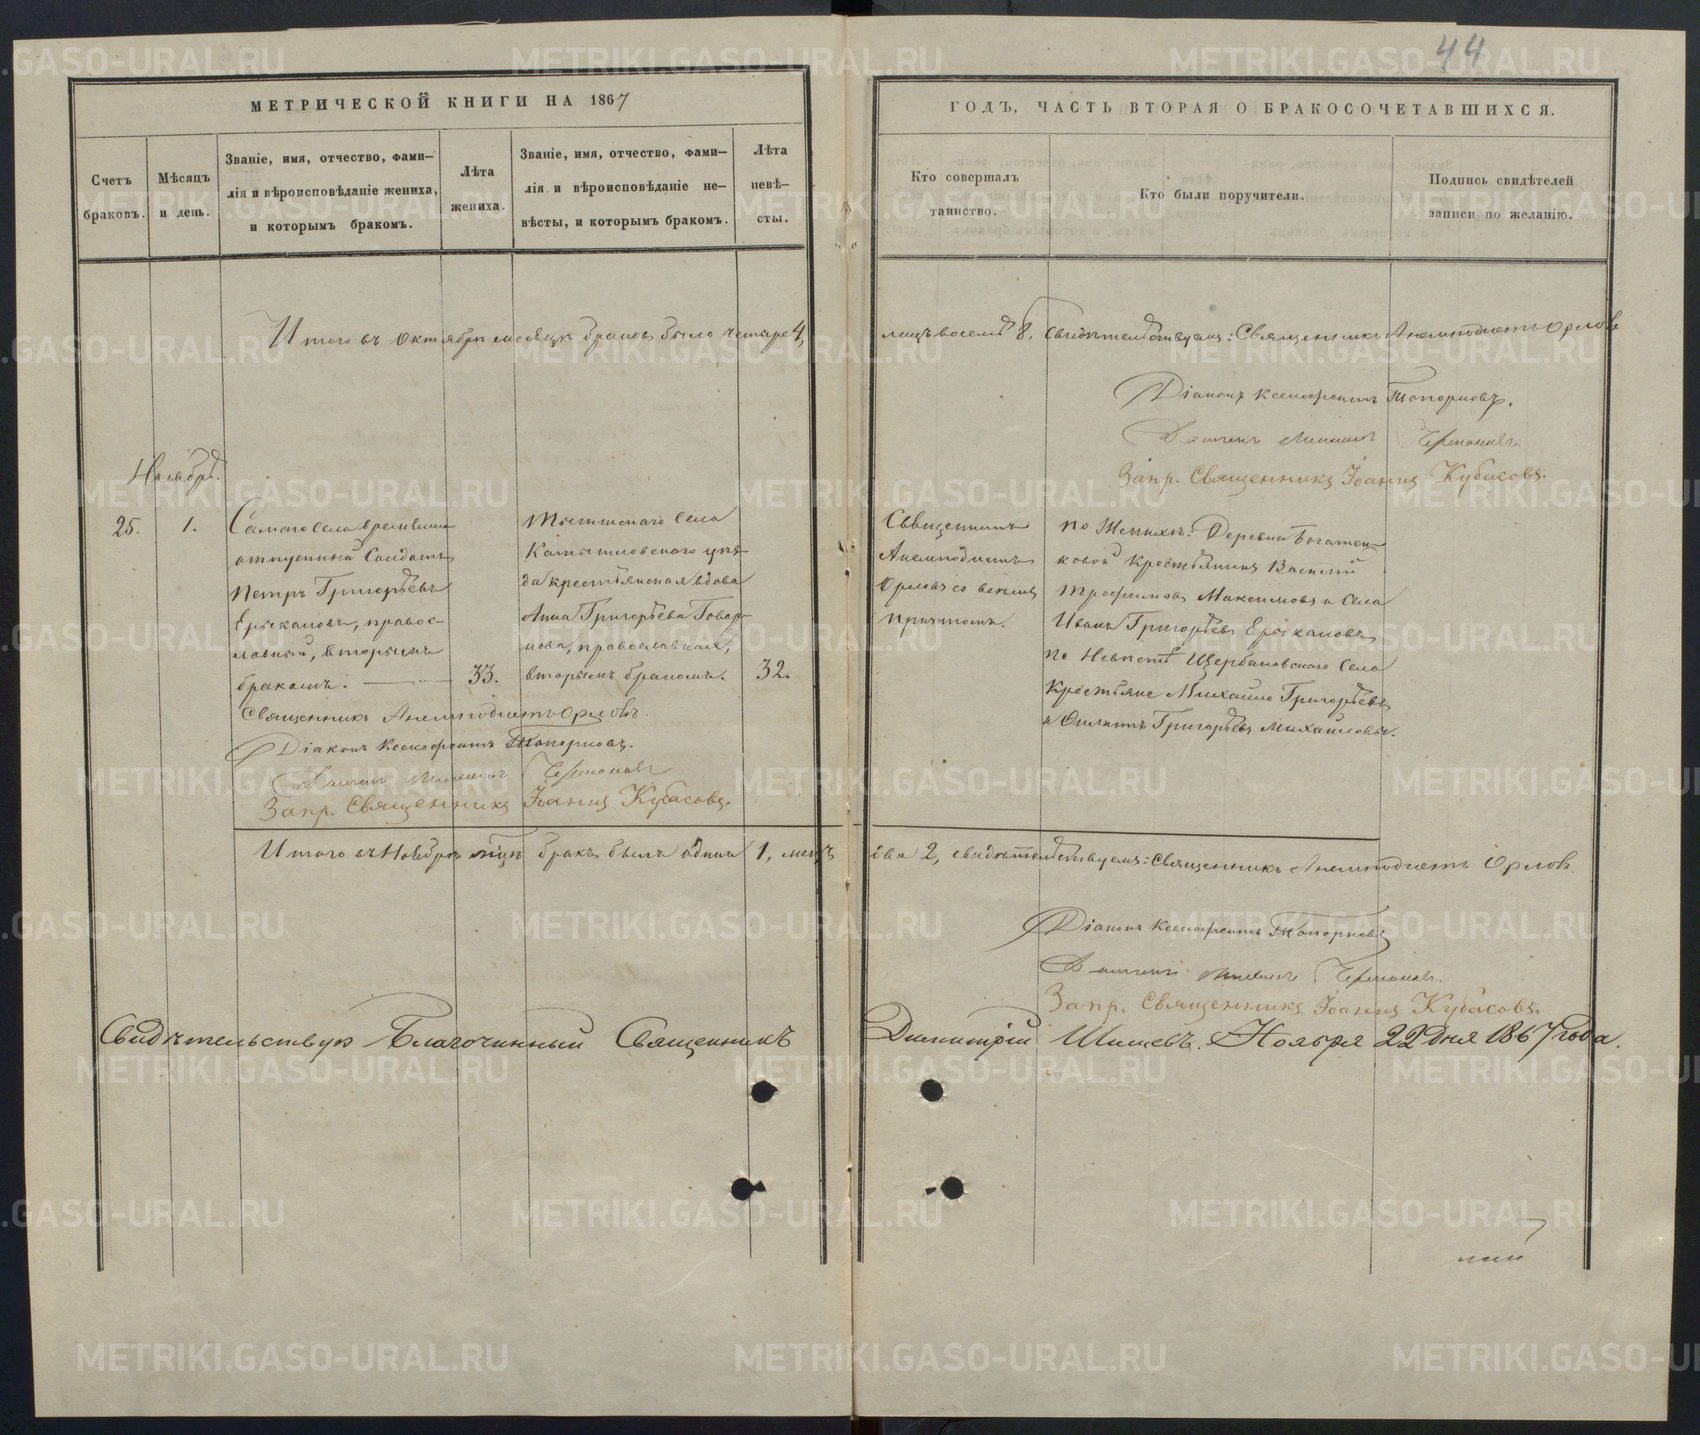 44
МЕТРИЧЕСКОЙ КНИГИ НА 1867
ГОДЪ, ЧАСТЬ ВТОРАЯ О БРАКОСОЧЕТАВШИХСЯ.
Счетъ
браковъ.
Мѣсяцъ
и день.
Званіе, имя, отчество, фами-
лія и вѣроисповѣданіе жениха,
и которымъ бракомъ.
Лѣта
жениха.
Званіе, имя, отчество, фами-
лія и вѣроисповѣданіе не-
вѣсты, и которымъ бракомъ.
Лѣта
невѣ-
сты.
Кто совершалъ
таинство.
Кто были поручители.
Подпись свидѣтелей
записи по желанію.
Итого въ Октябрѣ месяцѣ браковъ было четыре 4,
лицъ восемь 8, свидѣтельствуемъ: Священникъ Анемподистъ Орловъ
Діаконъ Ксенофонтъ Топорковъ.
Запр. Священникъ Іоаннъ Кубасовъ.
Ноябрь.
25.
1.
Самаго села временно
отпускный Солдатъ
Петръ Григорьевъ
Ерыкаловъ, правос-
лавный, вторымъ
бракомъ.
33.
села
Камышловскаго уѣз-
да крестьянская вдова
Анна Григорьева
православная,
вторымъ бракомъ.
32.
Священникъ
Анемподистъ
Орловъ со всѣмъ
причтомъ.
По Женихѣ: Деревни
крестьянинъ Василій
Трофимовъ Максимовъ и Села
Иванъ Григорьевъ Ерыкаловъ
по Невѣстѣ Щербаковскаго Села
Крестьяне Михайло Григорьевъ
и Филиппъ Григорьевъ Михайловы.
Священникъ Анемподистъ Орловъ.
Діаконъ Ксенофонтъ Топорковъ.
Запр. Священникъ Іоаннъ Кубасовъ.
Итого въ Ноябрѣ мѣцѣ бракъ былъ одинъ 1, лицъ
два 2, свидѣтельствуемъ: Священникъ Анемподистъ Орловъ.
Діаконъ Ксенофонтъ Топорковъ
Запр. Священникъ Іоаннъ Кубасовъ.
Свидѣтельствую Благочинный Священникъ
Димитрій Ноября 22 дня 1867 года.
METRIKI.GASO-URAL.RU